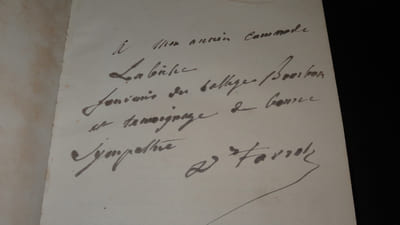 A mon ancien camarade
Labiche
souvenir du collège Bourbon
et temoignage de bonne
sympathie
Dr Favrot